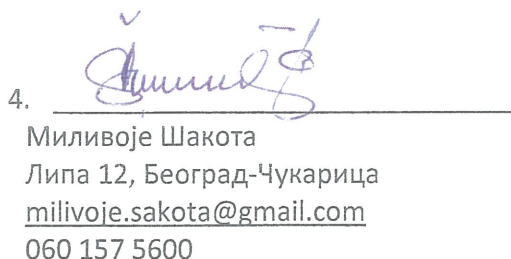 4.
Миливоје Шакота
Липа 12, Београд-Чукарица
milivoje.sakota@gmail.com
060 157 5600